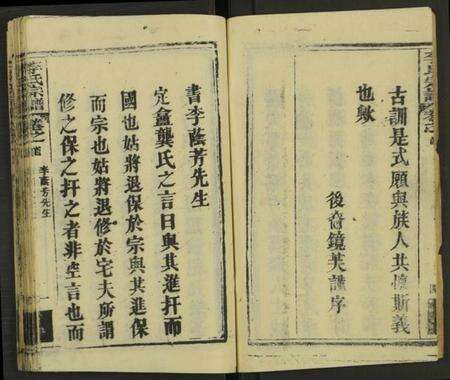 古訓是式願與族人共懷斯義
也歟
後裔鏡芙謹序
書李蔭芳先生
定盦龔氏之言曰與其進扞而
國也姑將退保於宗與其進保
而宗也姑將退修於宅夫所謂
修之保之扞之者非空言也而
李氏宗譜
卷之一
李蔭芳先生